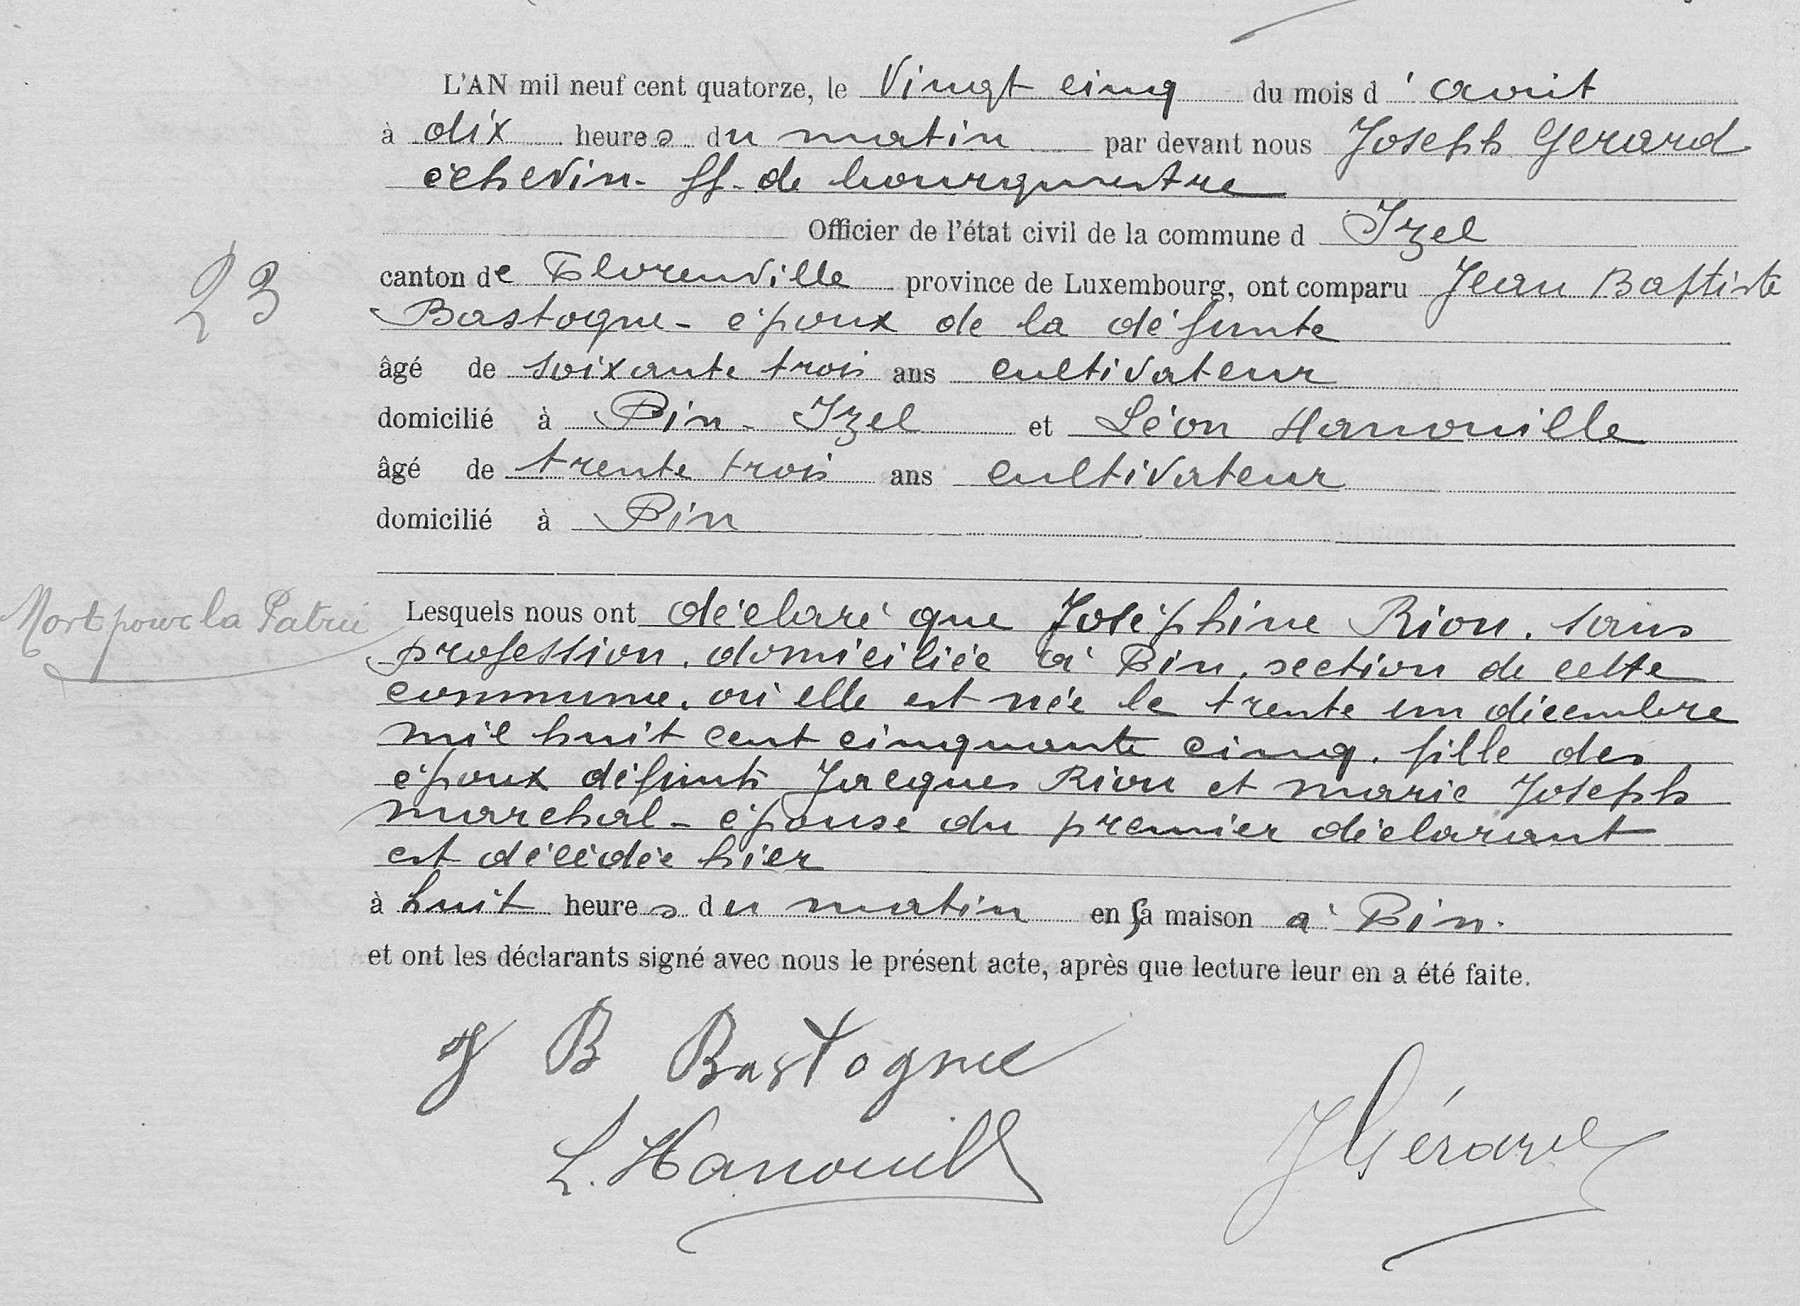 L'AN mil neuf cent quatorze, le Vingt cinq du mois d'aout
à dix heures du matin par devant nous Joseph Gerard
échevin - ff - de bourgmestre
Officier de l'état civil de la commune d Izel
23
canton de Florenville province de Luxembourg, ont comparu Jean Baptiste
Bastogne - époux de la défunte
âgé de soixante trois ans cultivateur
domicilié à Pin - Izel et Léon Hanouille
âgé de trente trois ans cultivateur
domicilié à Pin
Mort pour la Patrie
Lesquels nous ont déclaré que Joséphine Rion, sans
profession, domiciliée à Pin, section de cette
commune, où elle est née le trente un décembre
mil huit cent cinquante cinq, fille des
époux défunts Jacques Rion et marie Joseph
marchal - épouse du premier déclarant
est décédée hier
à huit heures du matin en sa maison à Pin.
et ont les déclarants signé avec nous le présent acte, après que lecture leur en a été faite.
J B Bastogne
L. Hanouille
J Gérard